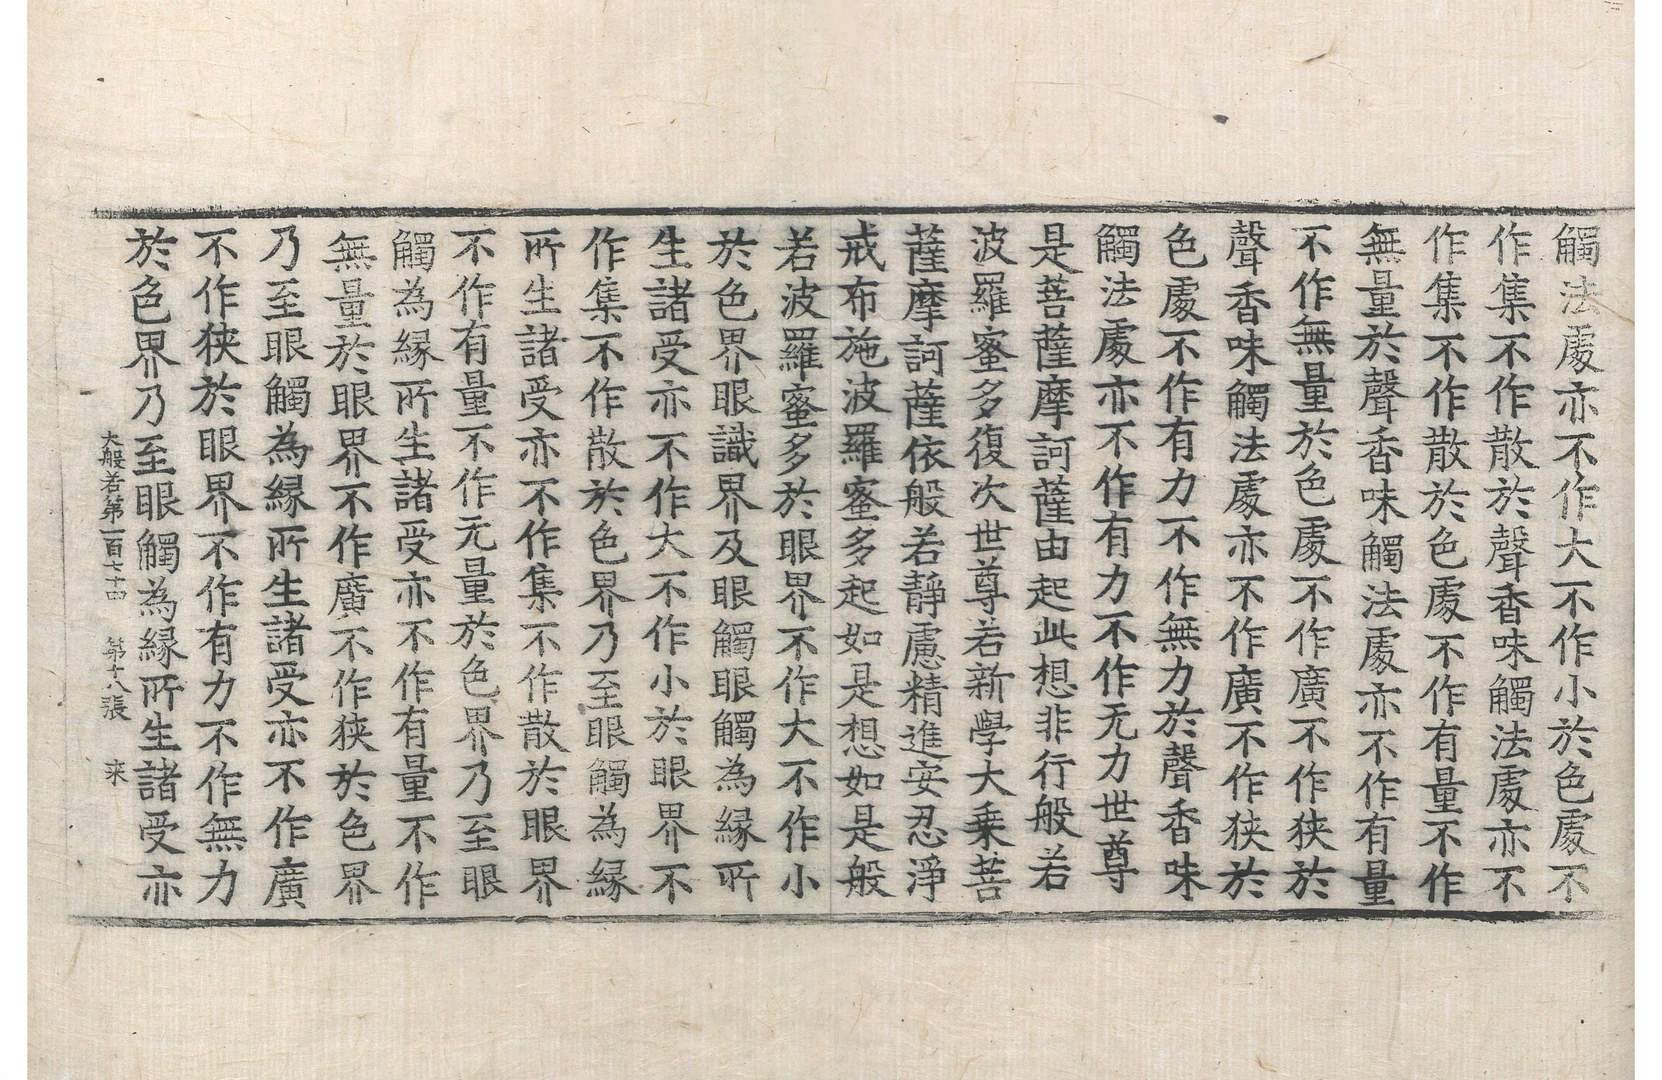 觸法處亦不作大不作小於色處不
作集不作散於聲香味觸法處亦不
作集不作散於色處不作有量不作
無量於聲香味觸法處亦不作有量
不作無量於色處不作廣不作狹於
聲香味觸法處亦不作廣不作狹於
色處不作有力不作無力於聲香味
觸法處亦不作有力不作无力世尊
是菩薩摩訶薩由起此想非行般若
波羅蜜多復次世尊若新學大乗菩
薩摩訶薩依般若靜慮精進安忍淨
戒布施波羅蜜多起如是想如是般
若波羅蜜多於眼界不作大不作小
於色界眼識界及眼觸眼觸為緣所
生諸受亦不作大不作小於眼界不
作集不作散於色界乃至眼觸為緣
所生諸受亦不作集不作散於眼界
不作有量不作无量於色界乃至眼
觸為緣所生諸受亦不作有量不作
無量於眼界不作廣不作狹於色界
乃至眼觸為緣所生諸受亦不作廣
不作狹於眼界不作有力不作無力
於色界乃至眼觸為緣所生諸受亦
大般若第一百七十四 第十八張 来